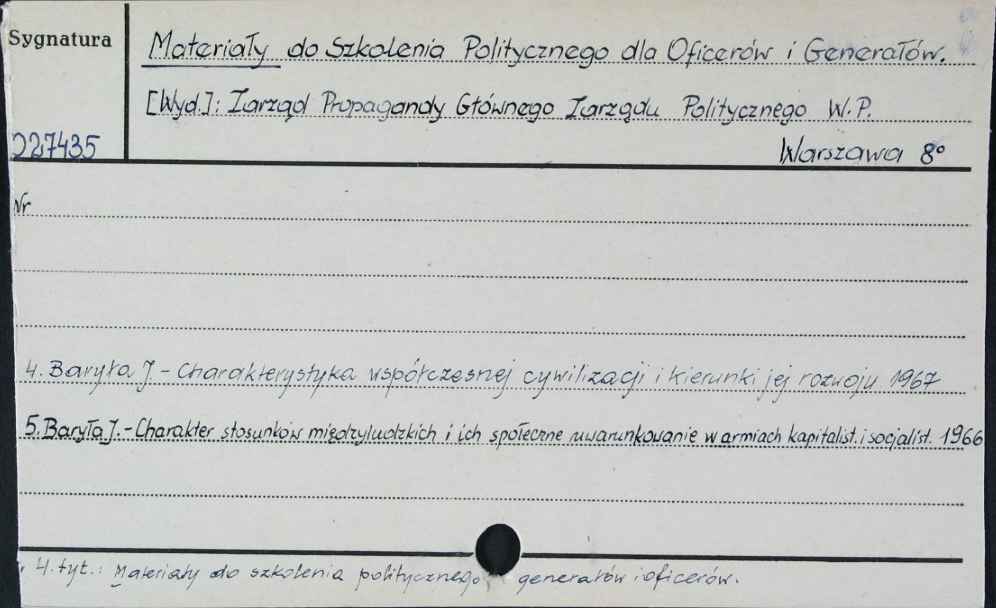 Sygnatura
Materiały do Szkolenia Politycznego dla Oficerów i Generałów.
[Wyd.]: Zarząd Propagandy Głównego Zarządu Politycznego W.P.
227435
Warszawa 8°
Nr
4. Baryła J - Charakterystyka współczesnej cywilizacji i kierunki jej rozwoju 1967
5. Baryła J. - Charakter stosunków międzyludzkich i ich społeczne uwarunkowanie w armiach kapitalist. i socjalist. 1966
4. tyt.: Materiały do szkolenia politycznego generałów i oficerów.